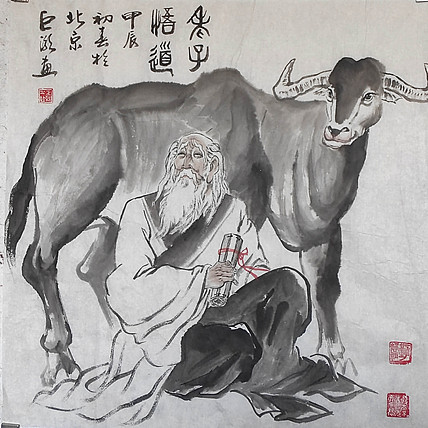 老子
悟道
甲辰
初春於
北京
巨画